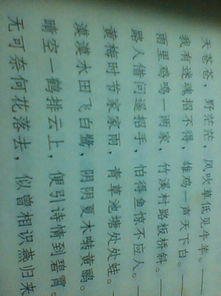 天苍苍，野茫茫，风吹草低见牛羊。
我有迷魂招不得，雄鸡一声天下白。
雨里鸡鸣一两家，竹溪村路板桥斜。
路人借问遥招手，怕得鱼惊不应人。
黄梅时节家家雨，青草池塘处处蛙。
漠漠水田飞白鹭，阴阴夏木啭黄鹂。
晴空一鹤排云上，便引诗情到碧霄。
无可奈何花落去，似曾相识燕归来